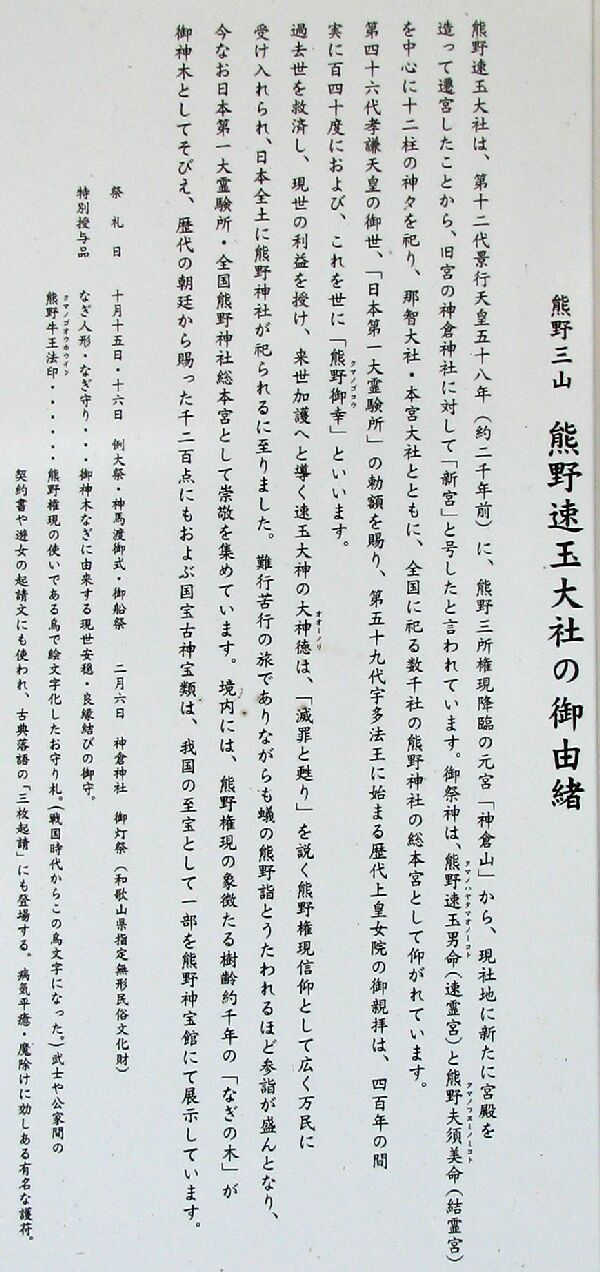 熊野三山　熊野速玉大社の御由緒
熊野速玉大社は、第十二代景行天皇五十八年（約二千年前）に、熊野三所権現降臨の元宮「神倉山」から、現社地に新たに宮殿を
造って遷宮したことから、旧宮の神倉神社に対して「新宮」と号したと言われています。御祭神は、熊野速玉男命（速霊宮）と熊野夫須美命（結霊宮）
を中心に十二柱の神々を祀り、那智大社・本宮大社とともに、全国に祀る数千社の熊野神社の総本宮として仰がれています。
第四十六代孝謙天皇の御世、「日本第一大霊験所」の勅額を賜り、第五十九代宇多法王に始まる歴代上皇女院の御親拝は、四百年の間
実に百四十度におよび、これを世に「熊野御幸」といいます。
過去世を救済し、現世の利益を授け、来世加護へと導く速玉大神の大神徳は、「滅罪と甦り」を説く熊野権現信仰として広く万民に
受け入れられ、日本全土に熊野神社が祀られるに至りました。難行苦行の旅でありながらも蟻の熊野詣とうたわれるほど参詣が盛んとなり、
今なお日本第一大霊験所・全国熊野神社総本宮として崇敬を集めています。境内には、熊野権現の象徴たる樹齢約千年の「なぎの木」が
御神木としてそびえ、歴代の朝廷から賜った千二百点にもおよぶ国宝古神宝類は、我国の至宝として一部を熊野神宝館にて展示しています。
祭礼日　十月十五日・十六日　例大祭・神馬渡御式・御船祭　二月六日　神倉神社　御灯祭（和歌山県指定無形民俗文化財）
特別授与品　なぎ人形・なぎ守り・・・御神木なぎに由来する現世安穏・良縁結びの御守。
熊野牛王法印・・・・・・熊野権現の使いである烏で絵文字化したお守り札。（戦国時代からこの烏文字になった。）武士や公家間の
契約書や遊女の起請文にも使われ、古典落語の「三枚起請」にも登場する。病気平癒・魔除けに効しある有名な護符。